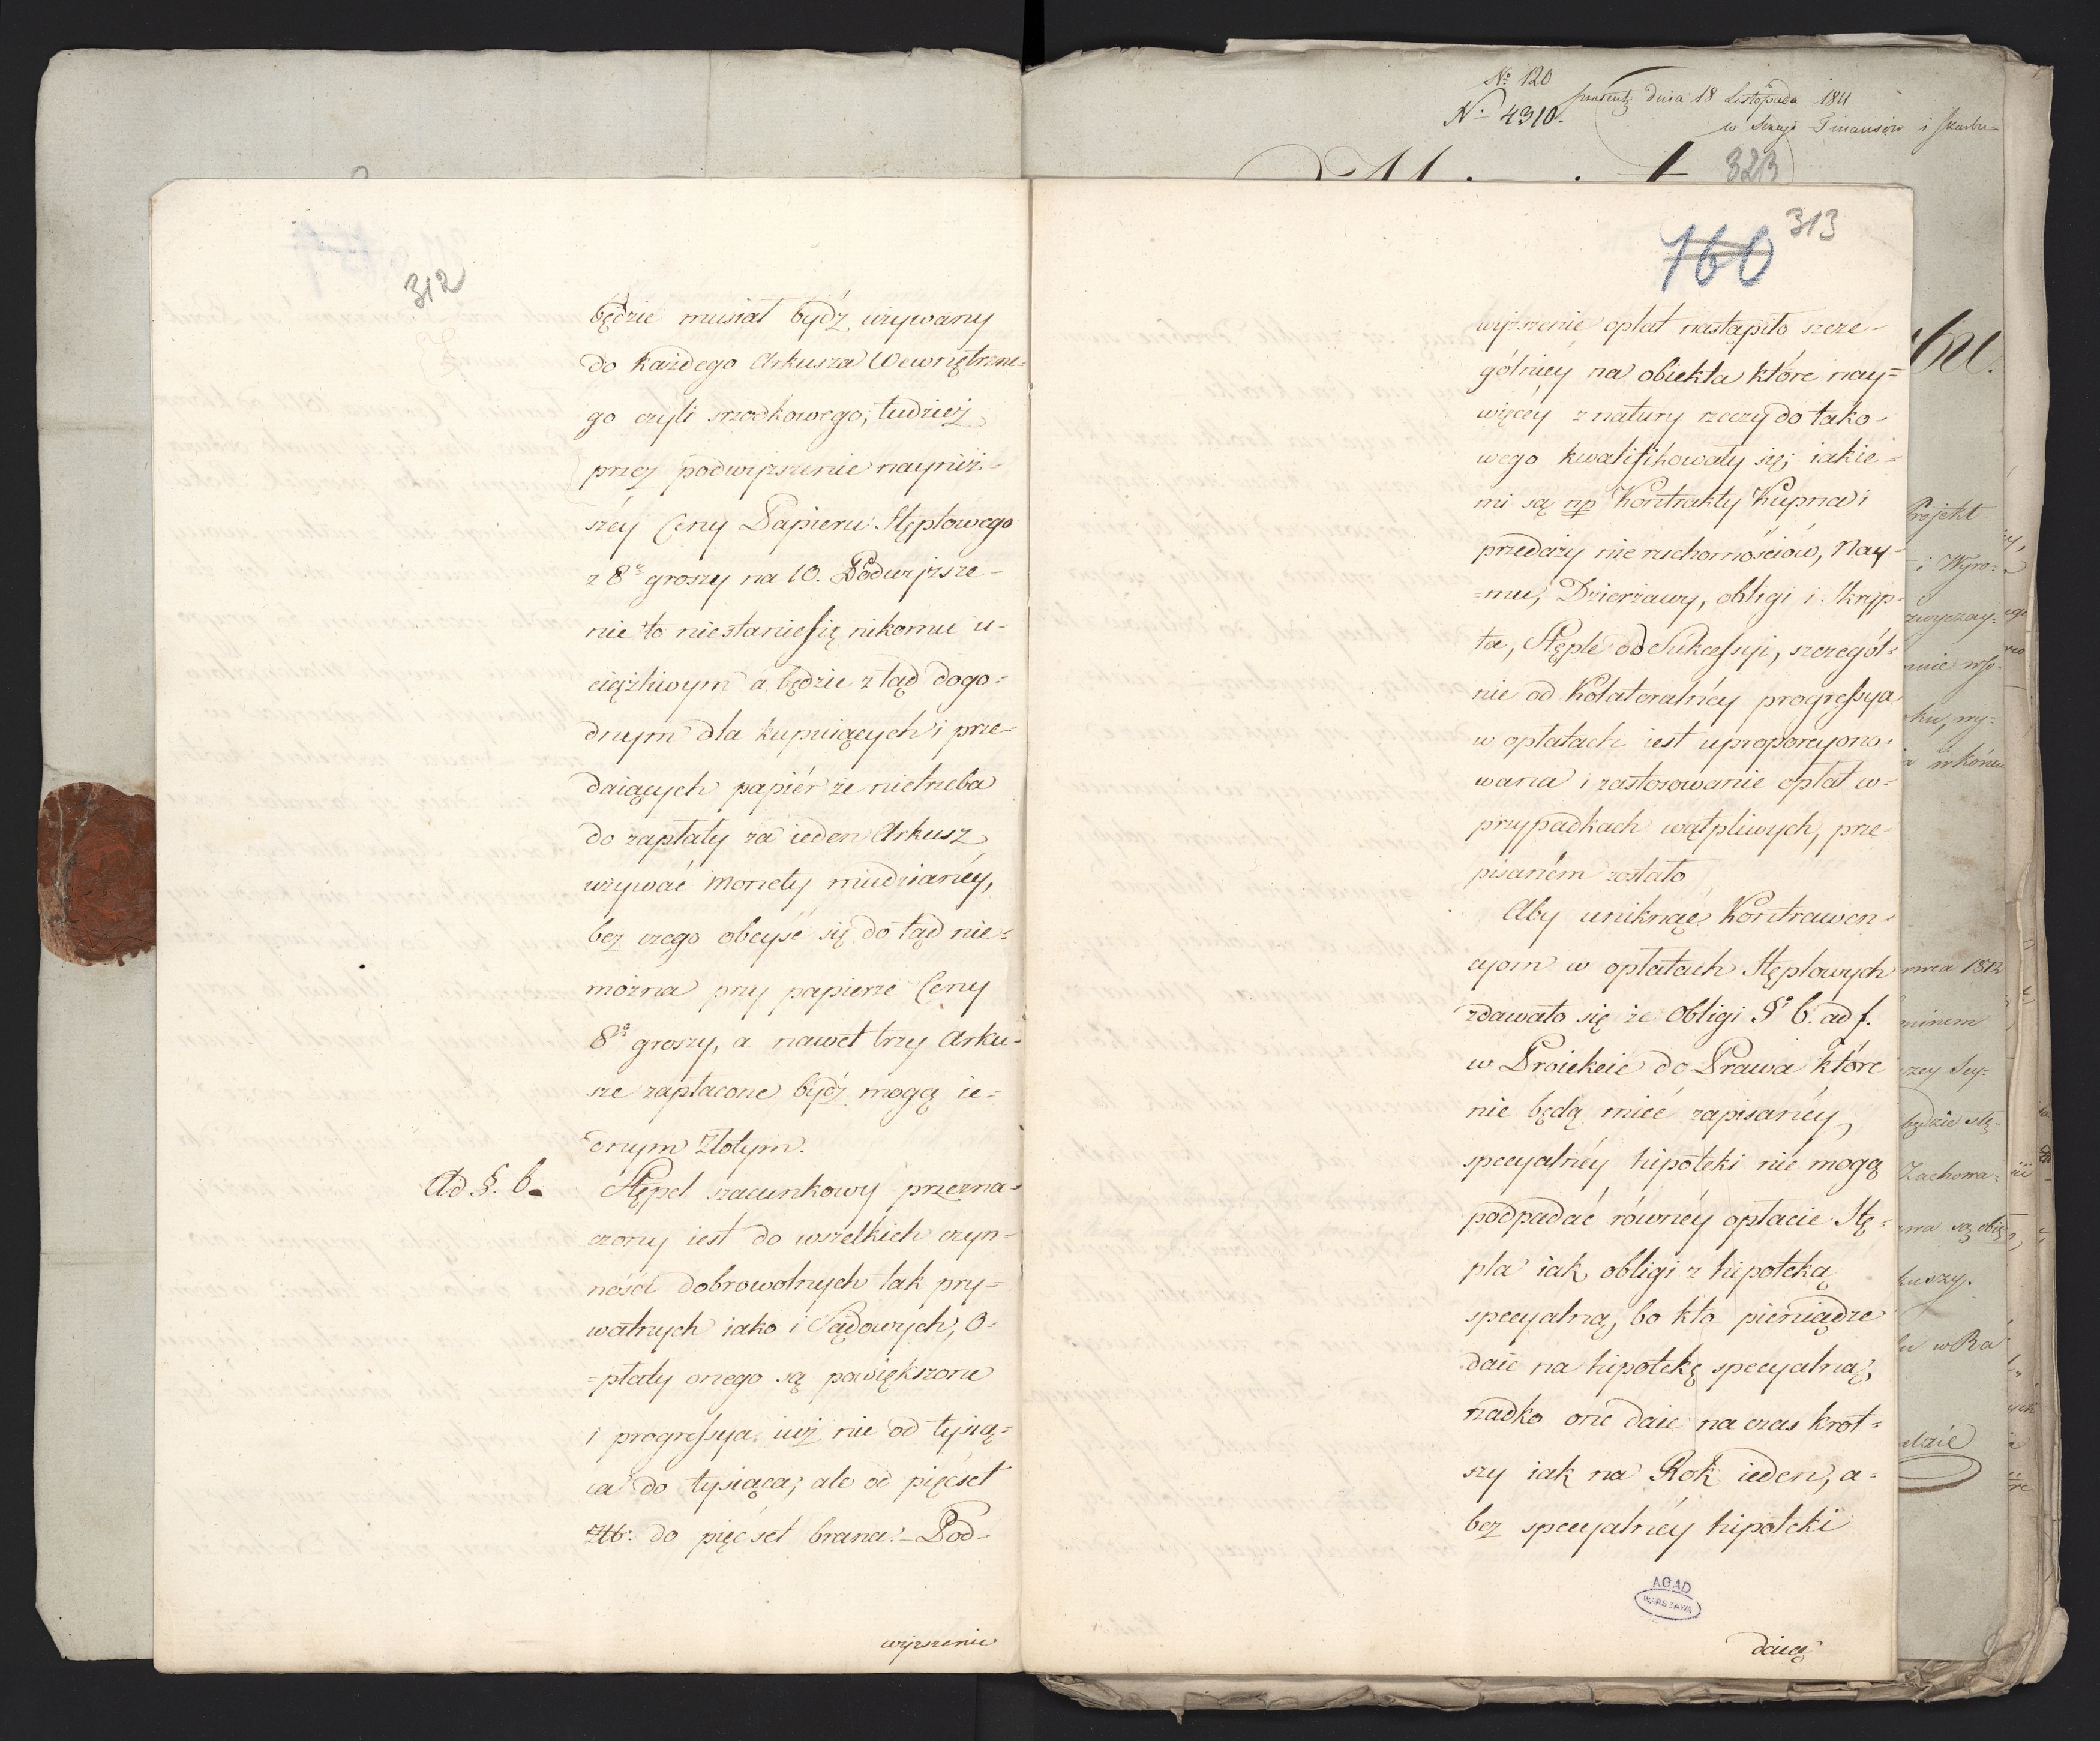 312
będzie musiał bydź używany
do każdego Arkusza Wewnętrzne-
go czyli srzodkowego, tudzież
przez podwyższenie nayniż-
széy Ceny Papieru Stęplowego
z 8ᵘ groszy na 10. Podwyższe-
nie to niestanie się nikomu u-
ciążliwym a będzie ztąd dogo-
dnym dla kupuiących i prze-
daiących papiér że nietrzeba
do zapłaty za ieden Arkusz
używać monety miedzianéy,
bez czego obcyść się dotąd nie-
można przy papierze Ceny
8ᵘ groszy, a nawet trzy Arku-
sze zapłacone bydź mogą ie-
dnym Złotym.
Ad §. 6. Stępel szacunkowy przezna-
czony iest do wszelkich czyn-
ności dobrowolnych tak pry-
watnych iako i Sądowych, O-
-płaty onego są powiększone
i progressya iuż nie od tysią-
ca do tysiąca, ale od pięćset
Złł. do pięćset brana. - Pod-
wyższenie
Nº 120
Nº 4310.
praesent: dnia 18 Listopada 1811
w Sekcyi Finansów i Skarbu
323
313
160
wyższenie opłat nastąpiło szcze-
gólniéy na obiekta które nay-
więcéy z natury rzeczy do tako-
wego kwalifikowały się, iakie-
mi są np Kontrakty Kupna i
przedaży nieruchomościów, Nay-
-mu, Dzierżawy, obligi i Skryp-
ta, Stęple od Sukcessyi, szczegól-
nie od Kolateralnéy progressya
w opłatach iest uproporcyono-
wana i zastosowanie opłat w-
przypadkach wątpliwych, prze-
pisaném zostało
Aby uniknąć Kontrawen-
cyom w opłatach Stęplowych
zdawało się że Obligi §º 6. ad f.
w Proiekcie do Prawa które
nie będą mieć zapisanéy
specyalnéy hipoteki nie mogą
podpadać równéy opłacie Stę-
pla iak obligi z hipoteką
specyalną, bo kto pieniądze
daie na hipotekę specyalną,
rzadko one daie na czas krót-
szy iak na Rok ieden, a-
bez specyalnéy hipoteki
AGAD
WARSZAWA
daiąc
Projekt
i Wyro-
zwyczay-
1812
będzie stę-
Zachowa-